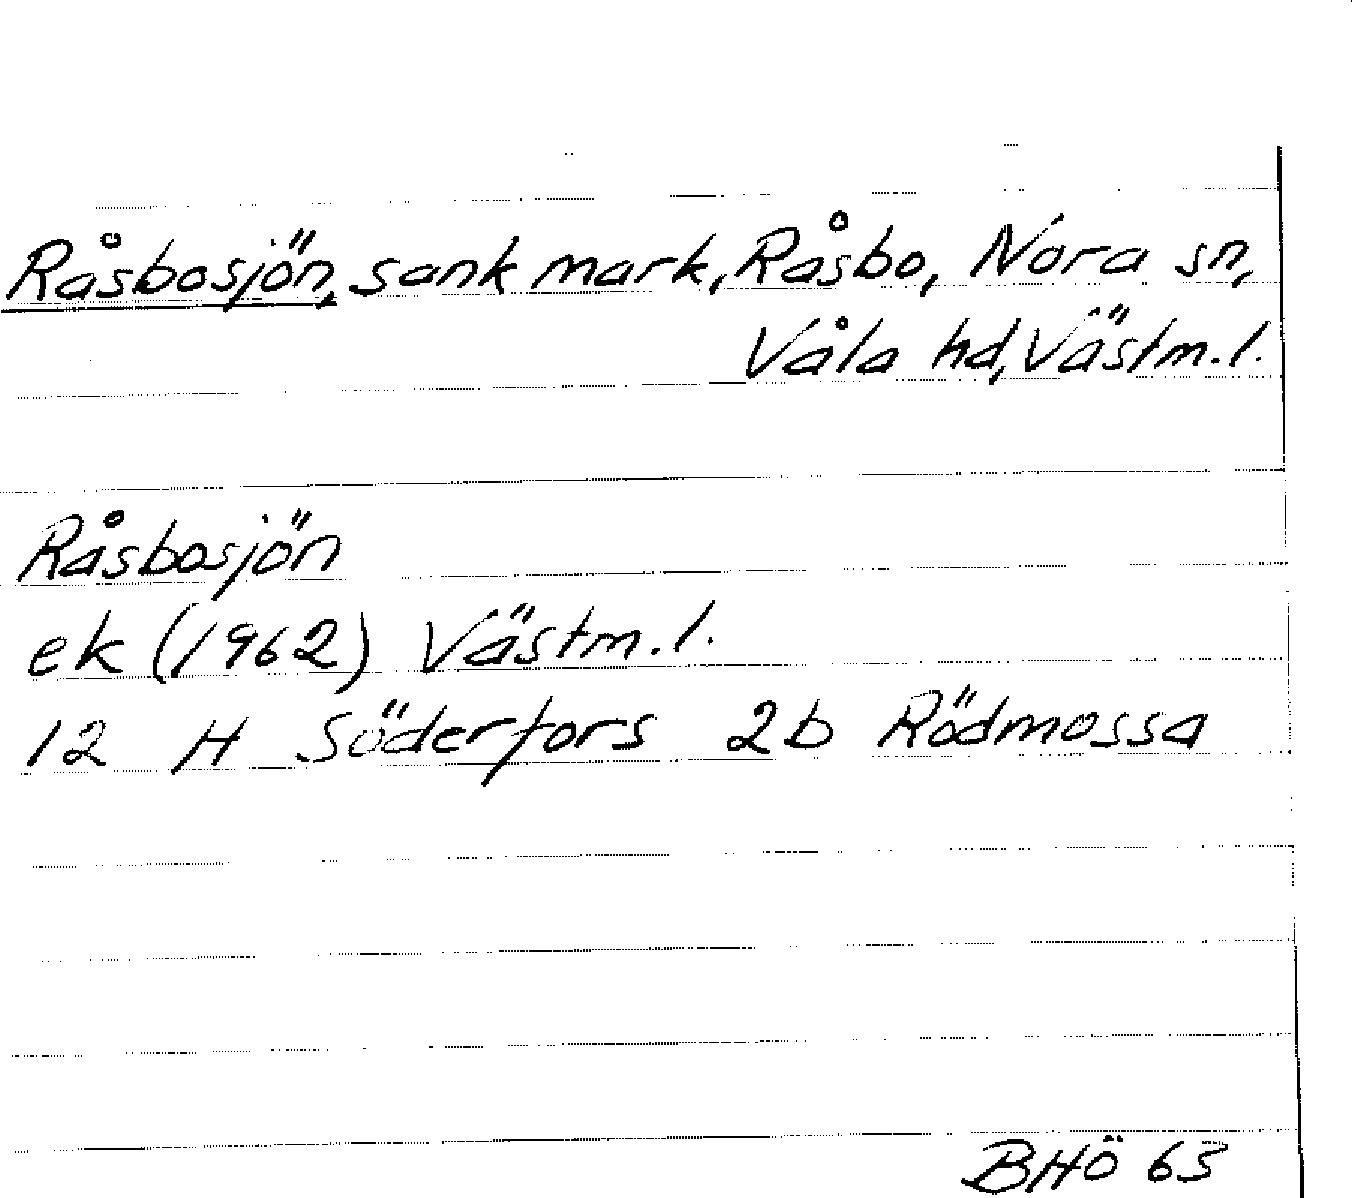 Råsbosjön, sank mark, Råsbo, Nora sn,
Våla hd, Västm. l.
Råsbosjön
ek (1962) Västm. l.
12 H Söderfors 2b Rödmossa
BHÖ 63